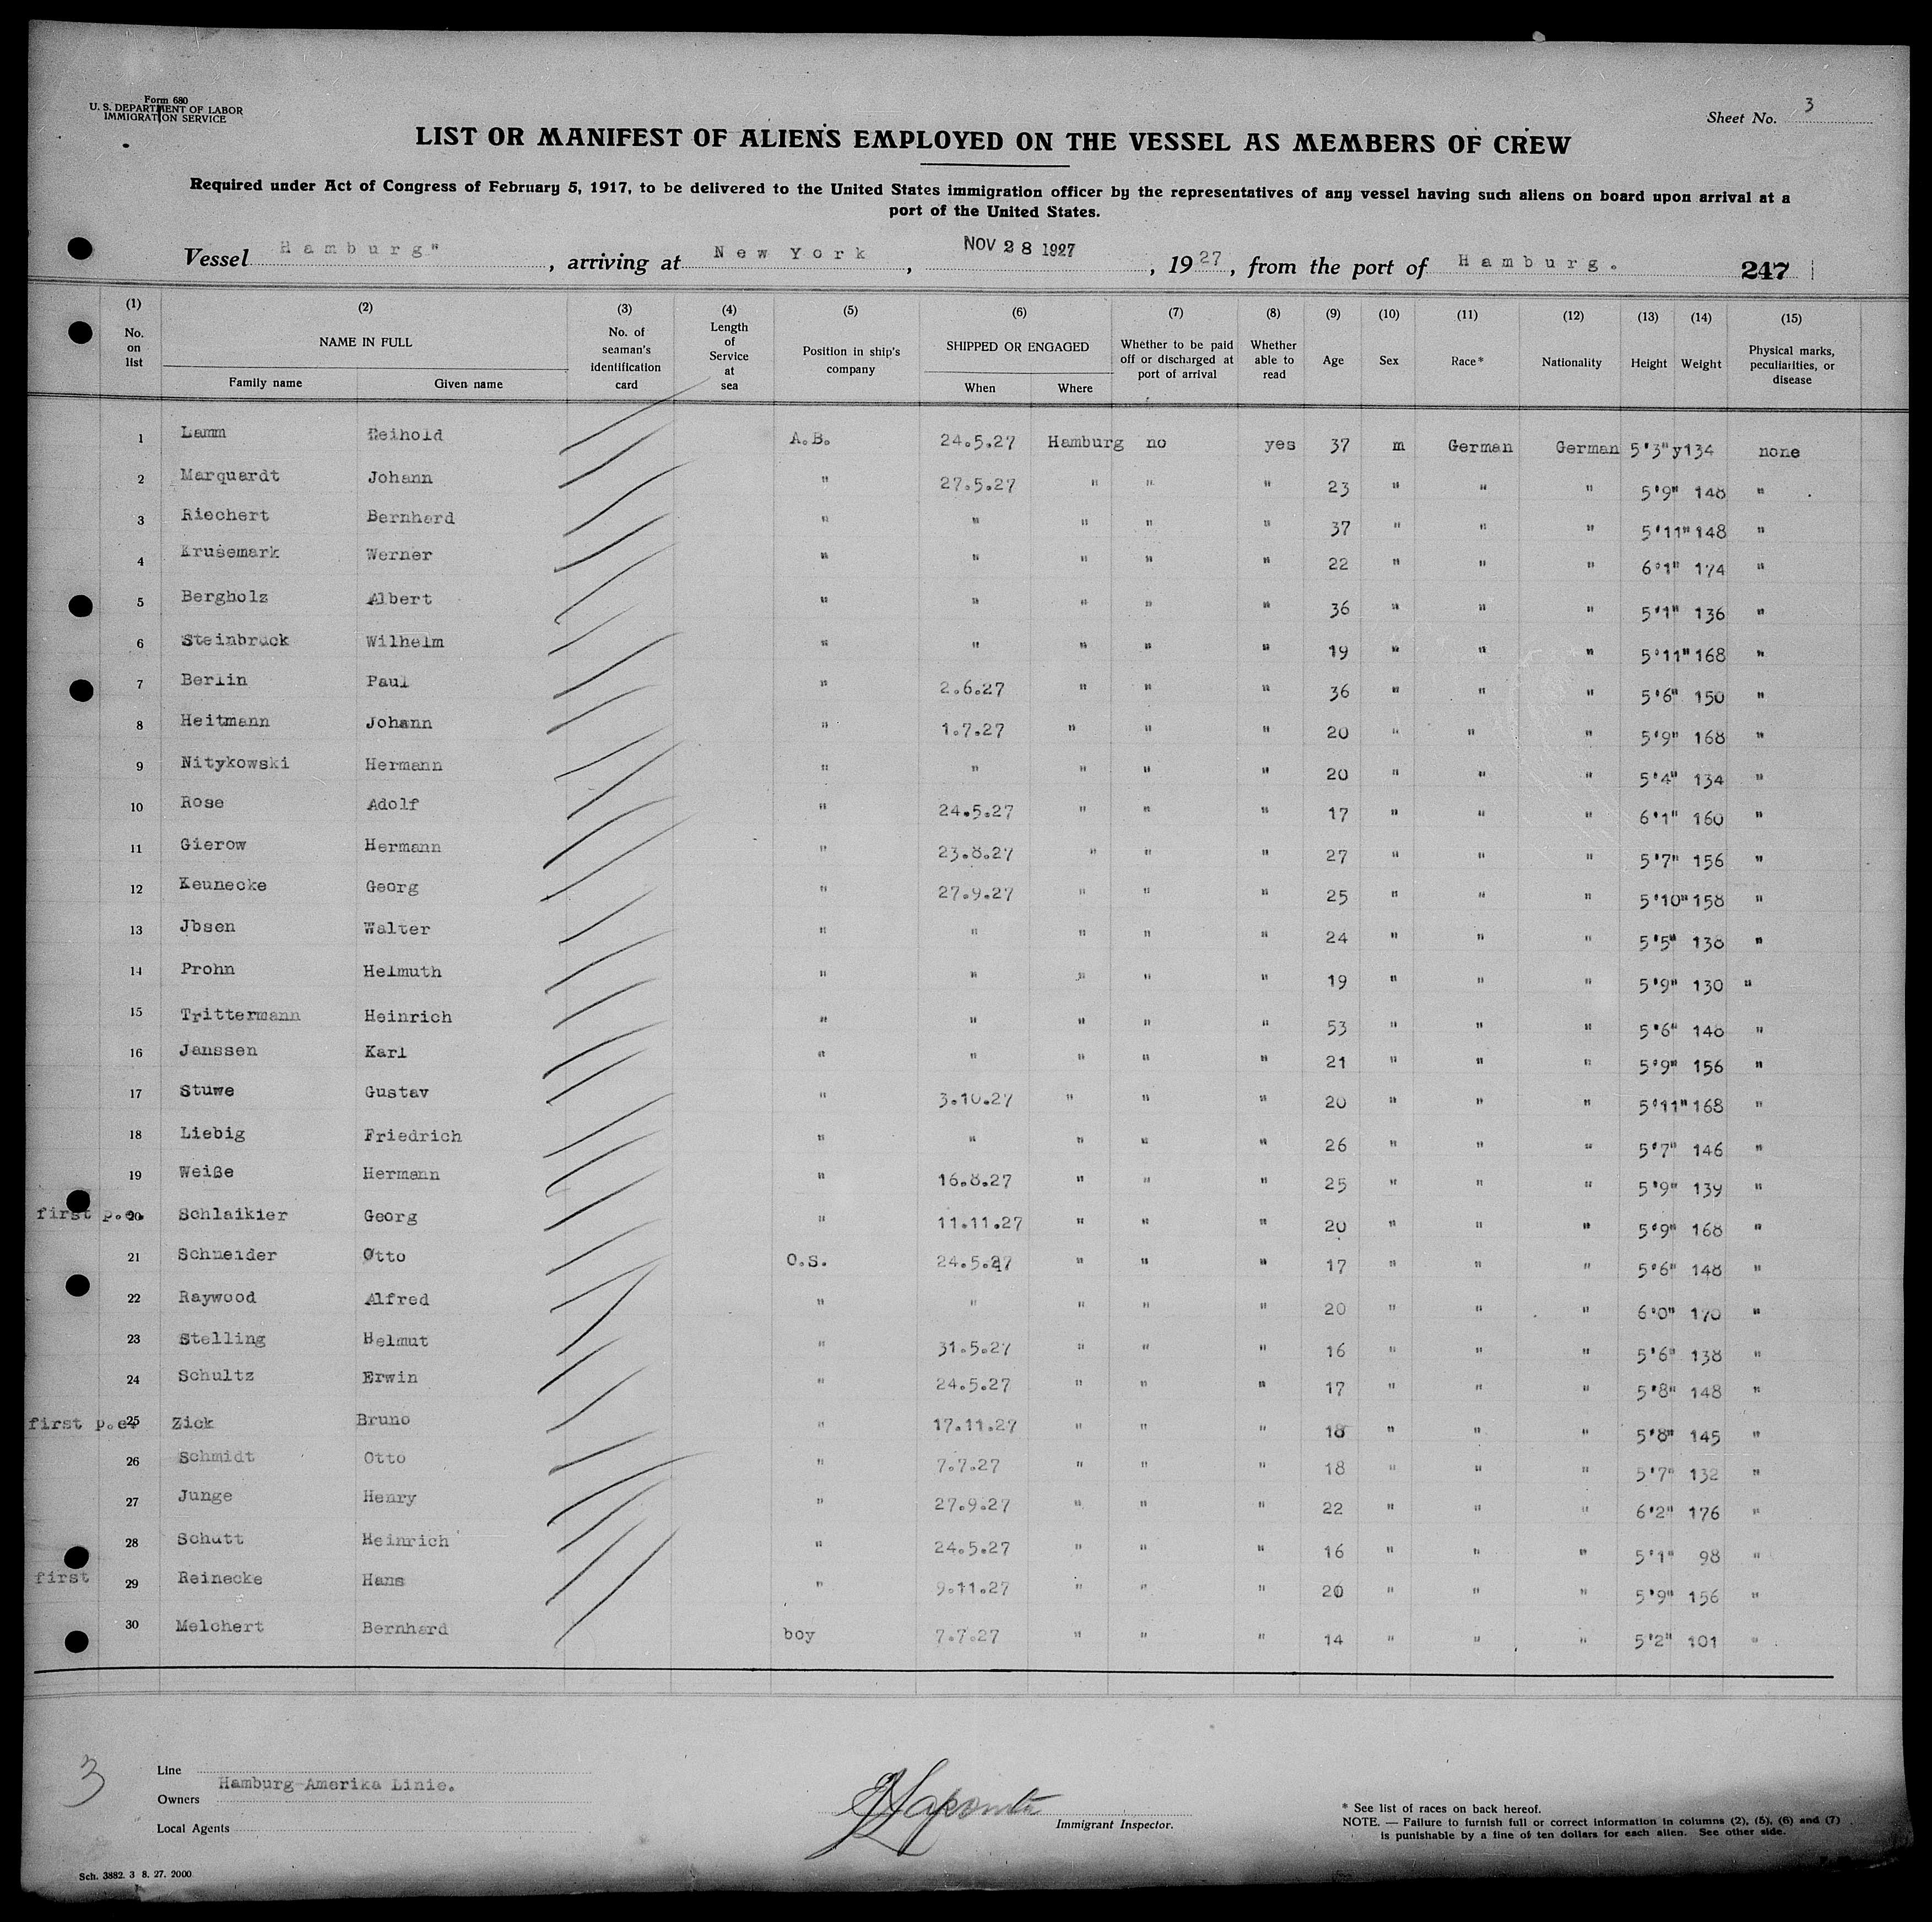 Form 680
U. S. DEPARTMENT OF LABOR
IMMIGRATION SERVICE
Sheet No. 3
LIST OR MANIFEST OF ALIENS EMPLOYED ON THE VESSEL AS MEMBERS OF CREW
Required under Act of Congress of February 5, 1917, to be delivered to the United States immigration officer by the representatives of any vessel having such aliens on board upon arrival at a
port of the United States.
Vessel Hamburg" , arriving at New York , NOV 28 1927 , 1927 , from the port of Hamburg. 247
(1) (2) (3) (4) (5) (6) (7) (8) (9) (10) (11) (12) (13) (14) (15)
No. on list NAME IN FULL Family name Given name No. of seaman's identification card Length of Service at sea Position in ship's company SHIPPED OR ENGAGED When Where Whether to be paid off or discharged at port of arrival Whether able to read Age Sex Race* Nationality Height Weight Physical marks, peculiarities, or disease
1 Lamm Reihold A.B. 24.5.27 Hamburg no yes 37 m German German 5'3" y134 none
2 Marquardt Johann " 27.5.27 " " " 23 " " " 5'9" 148 "
3 Riechert Bernhard " " " " " 37 " " " 5'11" 148 "
4 Krusemark Werner " " " " " 22 " " 6'1" 174 "
5 Bergholz Albert " " " " " 36 " " " 5'1" 136 "
6 Steinbruck Wilhelm " " " " " 19 " " " 5'11" 168 "
7 Berlin Paul " 2.6.27 " " " 36 " " " 5'6" 150 "
8 Heitmann Johann " 1.7.27 " " " 20 " " " 5'9" 168 "
9 Nitykowski Hermann " " " " " 20 " " " 5'4" 134 "
10 Rose Adolf " 24.5.27 " " " 17 " " " 6'1" 160 "
11 Gierow Hermann " 23.8.27 " " " 27 " " " 5'7" 156 "
12 Keunecke Georg " 27.9.27 " " " 25 " " " 5'10" 158 "
13 Jbsen Walter " " " " " 24 " " " 5'5" 138 "
14 Prohn Helmuth " " " " " 19 " " " 5'9" 130 "
15 Trittermann Heinrich " " " " " 53 " " " 5'6" 148 "
16 Janssen Karl " " " " " 21 " " " 5'9" 156 "
17 Stuwe Gustav " 3.10.27 " " " 20 " " " 5'11" 168 "
18 Liebig Friedrich " " " " " 26 " " " 5'7" 146 "
19 Weiße Hermann " 16.8.27 " " " 25 " " " 5'9" 139 "
first p.e. 20 Schlaikier Georg " 11.11.27 " " " 20 " " " 5'9" 168 "
21 Schneider Otto O.S. 24.5.27 " " " 17 " " " 5'6" 148 "
22 Raywood Alfred " " " " " 20 " " " 6'0" 170 "
23 Stelling Helmut " 31.5.27 " " " 16 " " " 5'6" 138 "
24 Schultz Erwin " 24.5.27 " " " 17 " " " 5'8" 148 "
first p.e. 25 Zick Bruno " 17.11.27 " " " 18 " " " 5'8" 145 "
26 Schmidt Otto " 7.7.27 " " " 18 " " " 5'7" 132 "
27 Junge Henry " 27.9.27 " " " 22 " " " 6'2" 176 "
28 Schutt Heinrich " 24.5.27 " " " 16 " " " 5'1" 98 "
first 29 Reinecke Hans " 9.11.27 " " " 20 " " " 5'9" 156 "
30 Melchert Bernhard boy 7.7.27 " " " 14 " " " 5'2" 101 "
3
Line
Hamburg-Amerika Linie.
Owners
Local Agents
Immigrant Inspector.
* See list of races on back hereof.
NOTE. — Failure to furnish full or correct information in columns (2), (5), (6) and (7)
is punishable by a fine of ten dollars for each alien. See other side.
Sch. 3882. 3 8. 27. 2000